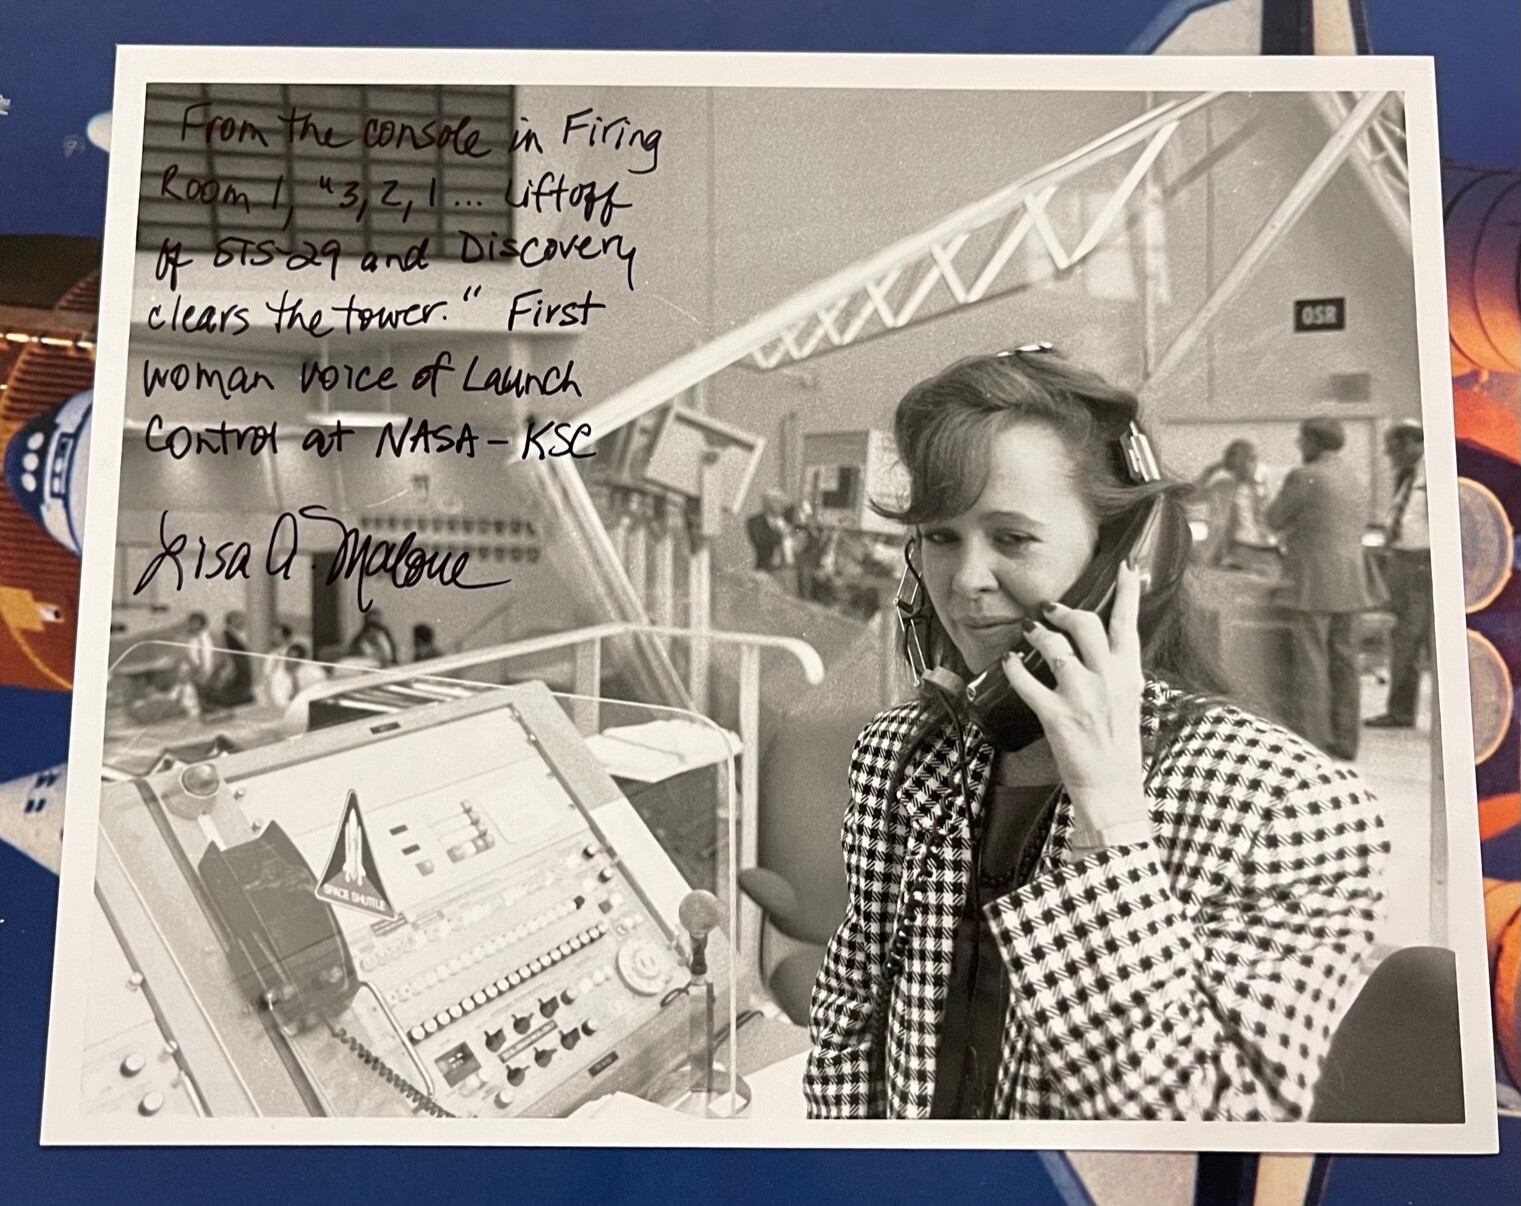 From the console in Firing
Room 1, "3, 2, 1 ... Liftoff
of STS-29 and Discovery
clears the tower." First
woman voice of Launch
Control at NASA - KSC
Lisa A. Malone
OSR
SPACE SHUTTLE